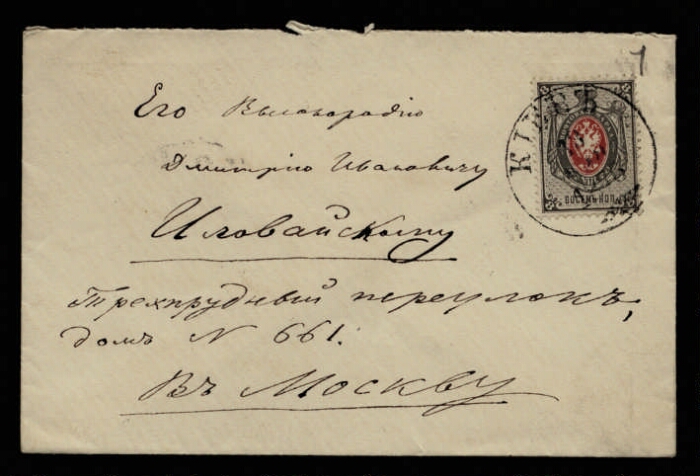 КІЕВЪ
ВОСЕМЬ КОП.
Его Высокородію
Дмитрію Ивановичу
Иловайскому
Трехпрудный переулокъ,
домъ N 661.
Въ Москву